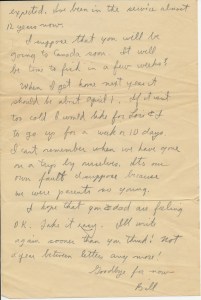 expected, has been in the service almost
12 years now.
I suppose that you will be
going to Canada soon. It will
be time to fish in a few weeks!
When I get home next year it
should be about April 1, If it isn't
too cold I would like for Doris & I
to go up for a week or 10 days.
I can't remember when we have gone
on a trip by ourselves. It's my
own fault I suppose because
we were parents so young.
I hope that you & dad are feeling
OK. Take it easy. I'll write
again sooner than you think! Not
between letters any more!
Goodbye for now
Bill